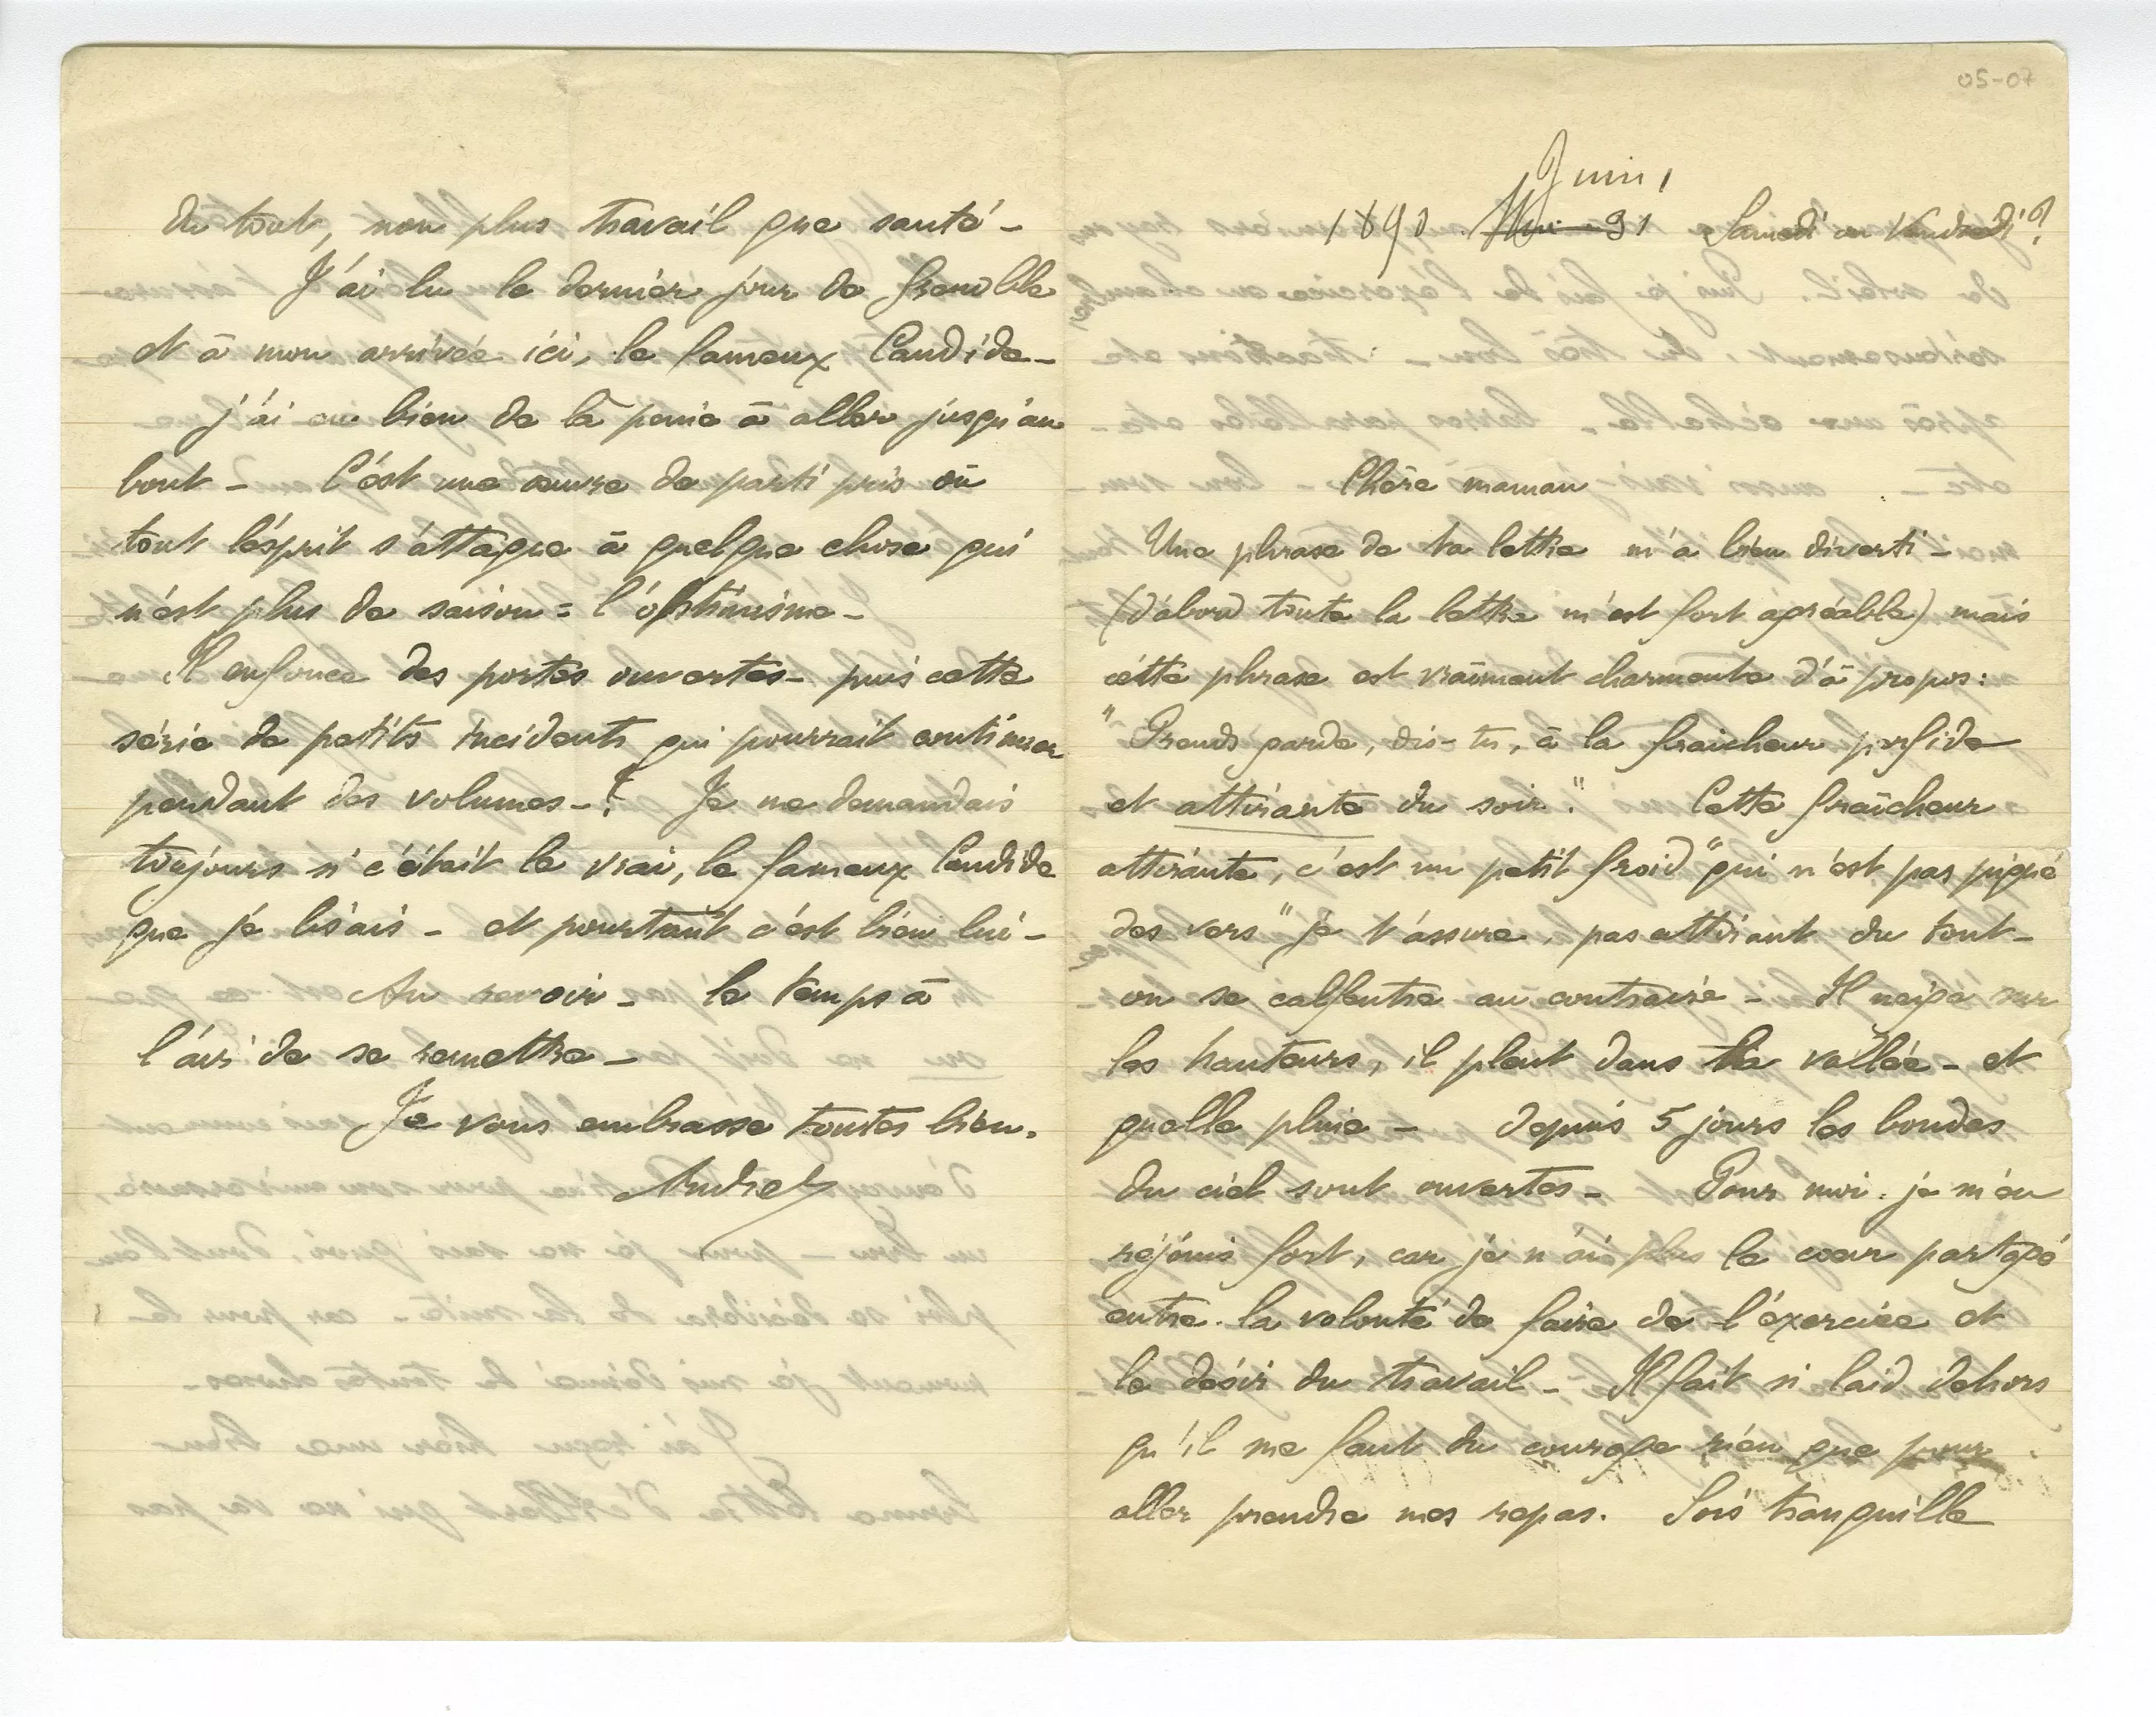 05-07
Juin
1890 Mai 31 Samedi ou Vendredi?
Chère maman
Une phrase de ta lettre m'a bien diverti –
(d'abord toute la lettre m'est fort agréable) mais
cette phrase est vraiment charmante d'à propos:
"Prends garde, dis-tu, à la fraîcheur perfide
et attirante du soir." Cette fraîcheur
attirante, c'est un petit froid "qui n'est pas piqué
des vers" je t'assure, pas attirant du tout –
on se calfeutre au contraire – Il neige sur
les hauteurs, il pleut dans la vallée – et
quelle pluie – depuis 5 jours les bondes
du ciel sont ouvertes – Pour moi, je m'en
réjouis fort, car je n'ai plus le cœur partagé
entre la volonté de faire de l'exercice et
le désir du travail – Il fait si laid dehors
qu'il me faut du courage rien que pour
aller prendre mes repas. Sois tranquille
du tout, non plus travail que santé –
J'ai lu le dernier jour de Grenoble
et à mon arrivée ici, le fameux Candide –
j'ai eu bien de la peine à aller jusqu'au
bout – C'est une œuvre de parti pris où
tout l'esprit s'attaque à quelque chose qui
n'est plus de saison = l'optimisme –
Il enfonce des portes ouvertes – puis cette
série de petits incidents qui pourrait continuer
pendant des volumes –! Je me demandais
toujours si c'était le vrai, le fameux Candide
que je lisais – et pourtant c'est bien lui –
Au revoir – le temps a
l'air de se remettre –
Je vous embrasse toutes bien.
André